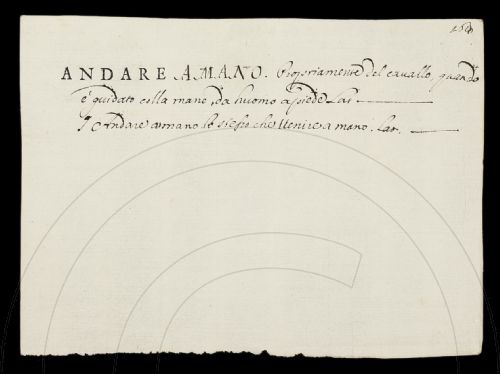 ANDARE A MANO. Propriamente del cavallo, quando
è guidato colla mano da huomo à piede Lat
Andare a mano lo stesso che Venire a mano. Lat.